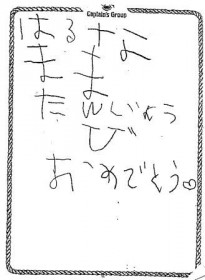 Captain's Group
はるな
まま
たんじょう
び
おめでとう。